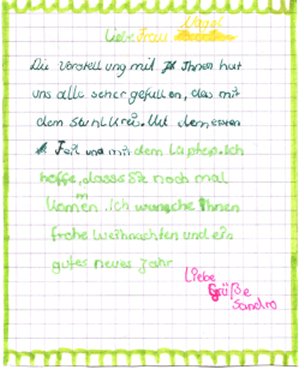 Liebe Frau Vogel
Die Vorstellung mit Ihnen hat
uns alle seher gefallen, das mit
dem Stuhlkreis. Mit dem ersten
Teil und mit dem Laptop. Ich
hoffe, dasss Sie noch mal
komen. Ich wünsche Ihnen
frohe Weihnachten und ein
gutes neues Jahr
Liebe
Grüße
Sandro